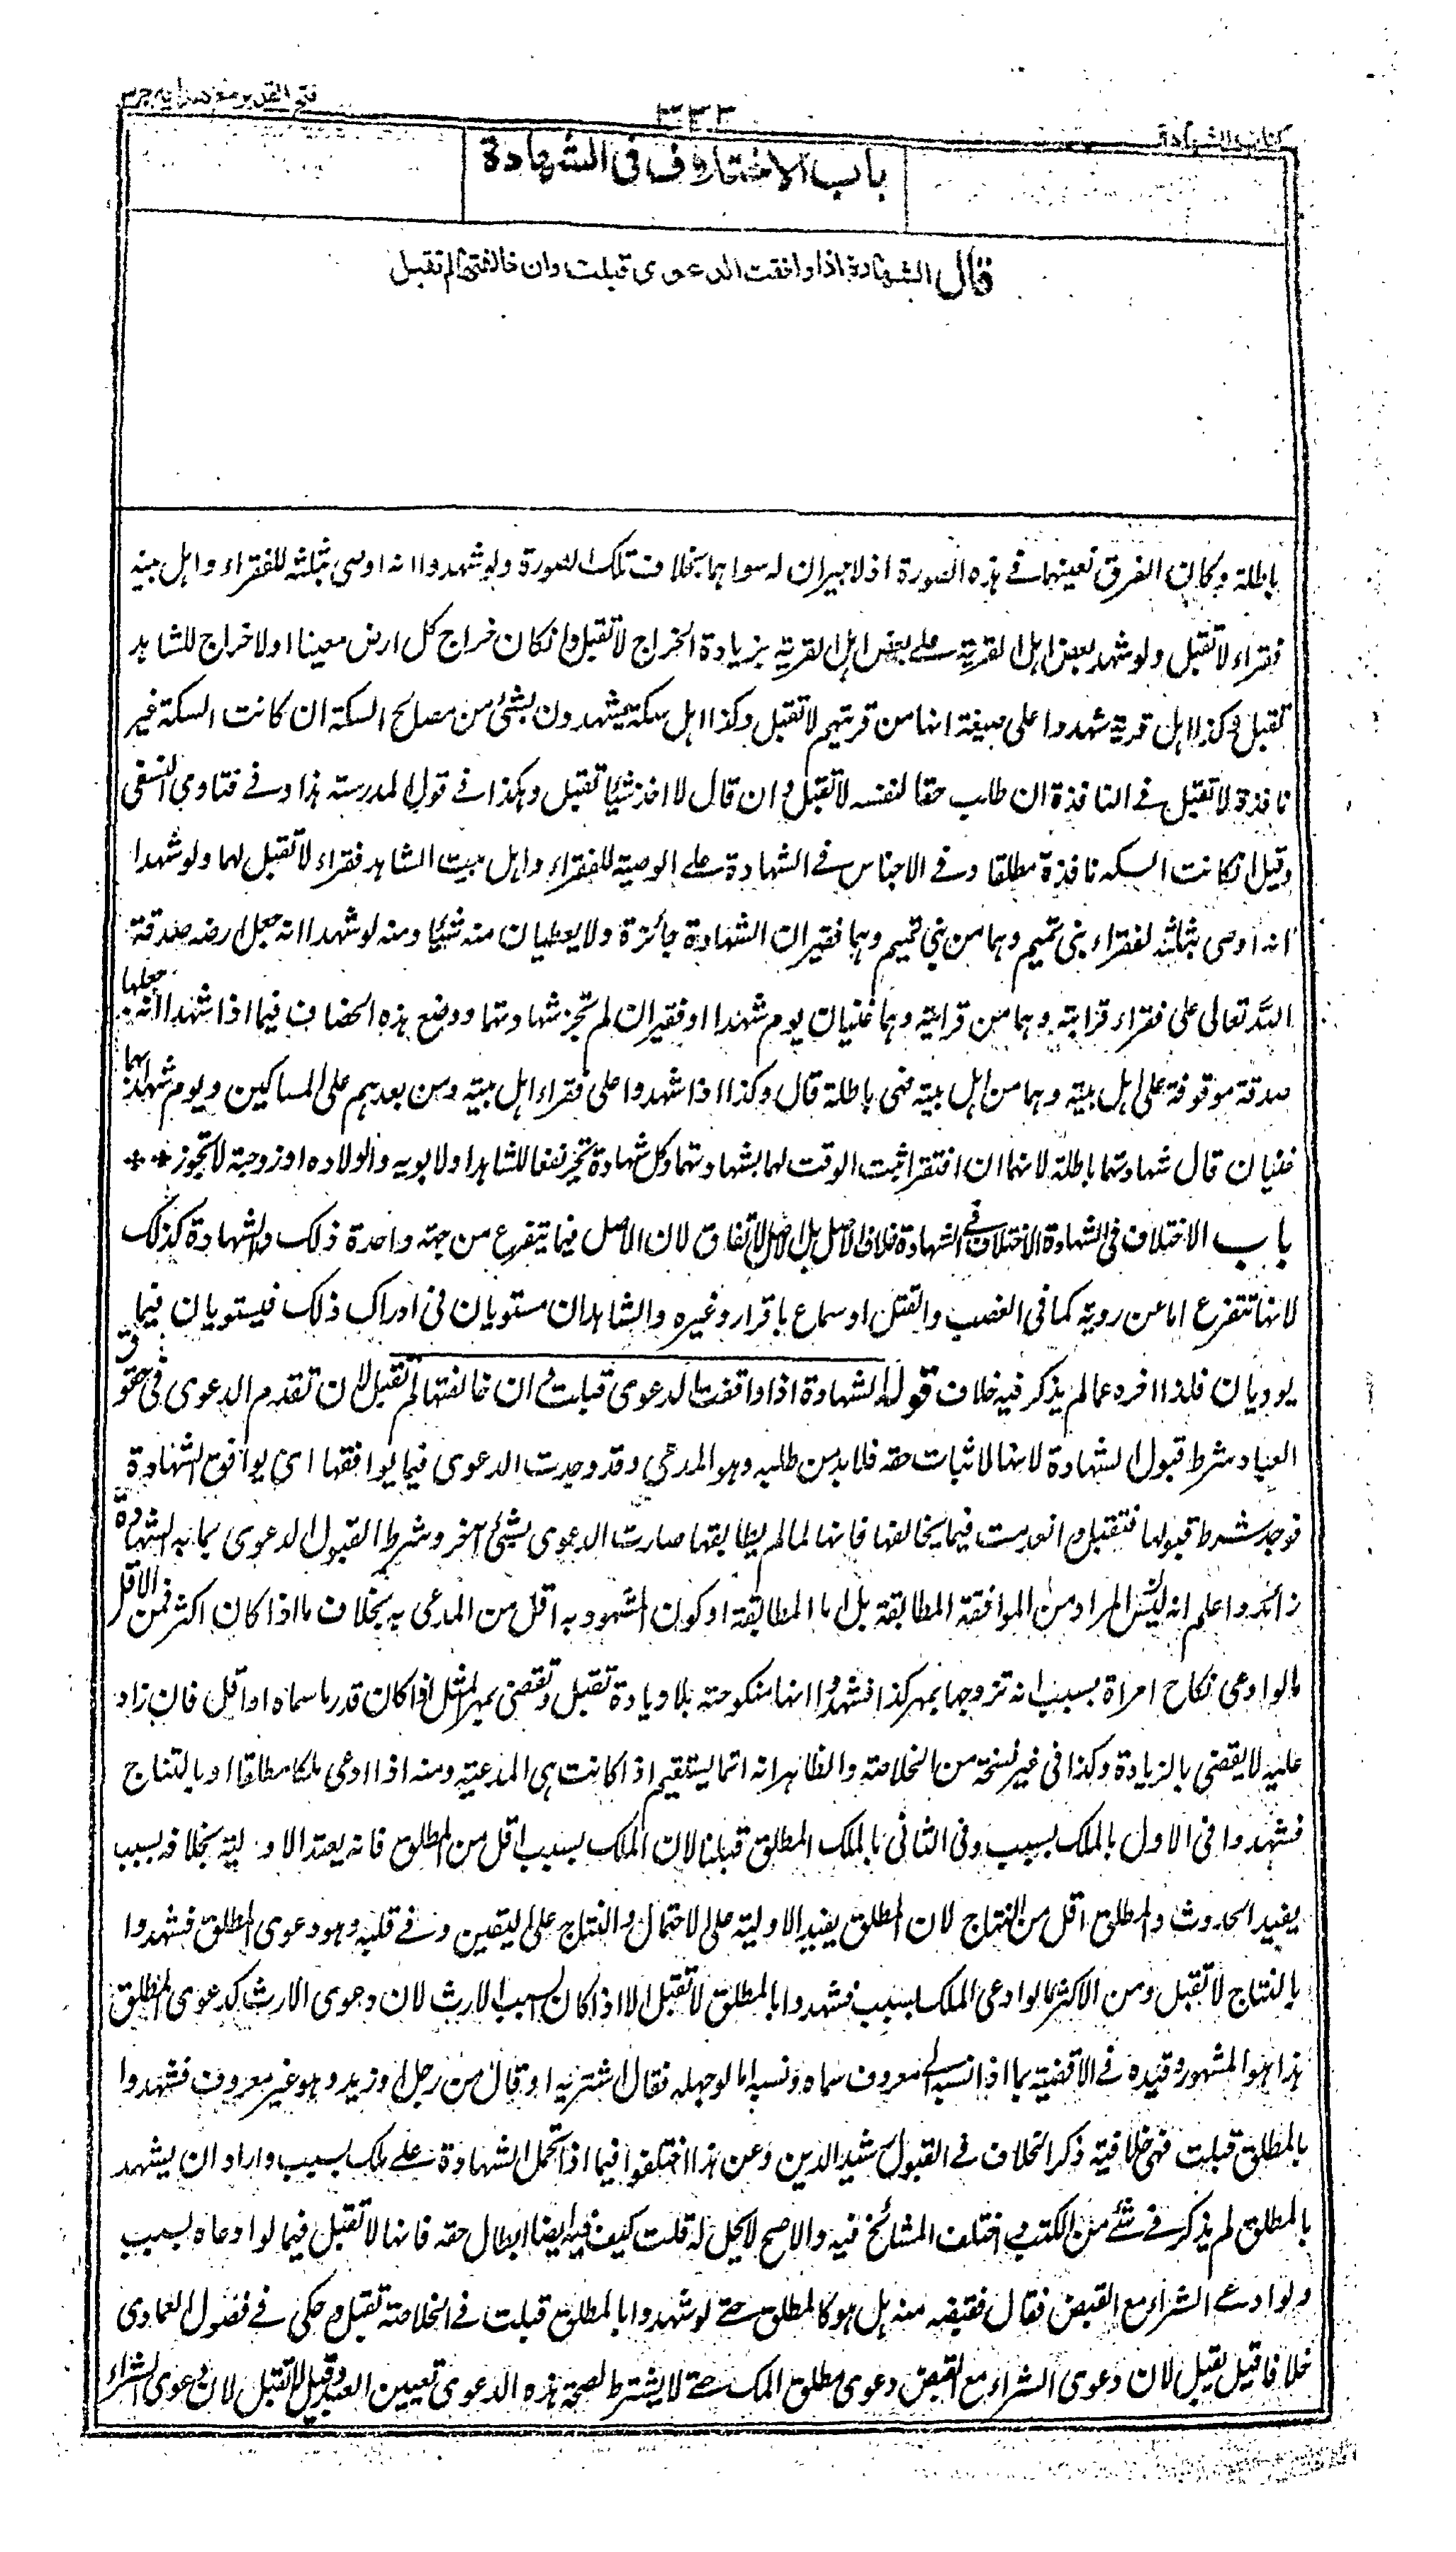 كتاب الشهادة
٣٣٢
فتح القدير مع هداية ج٣
باب الاختلاف فى الشهادة
قال الشهادة اذا وافقت الدعوى قبلت وان خالفتها لم تقبل
باطلة وكان الفرق تعينهما فے هذه الصورة اذ لا ميراث له سواهما بخلاف تلك الصورة ولو شهدوا انه اوصى بثلثه للفقراء واهل بيته
فقراء لا تقبل ولو شهد بعض اهل القرية علے بعض اهل القرية بزيادة الخراج لا تقبل وان كان خراج كل ارض معينا او لا خراج للشاهد
تقبل وكذا اهل قرية شهدوا على ضيعة انها من قريتهم لا تقبل وكذا اهل سكة يشهدون بشئ من مصالح السكة ان كانت السكة غير
نافذة لا تقبل فے النافذة ان طلب حقا لنفسه لا تقبل وان قال لا اخذ شيئا تقبل وهكذا فے قول المدرسة هذا وفے فتاوى النسفى
وقيل ان كانت السكة نافذة مطلقا وفے الاجناس فے الشهادة علے الوصية للفقراء واهل بيت الشاهد فقراء لا تقبل لهما ولو شهدا
انه اوصى بثلثه لفقراء بنى تميم وهما من بنى تميم وهما فقيران الشهادة جائزة ولا يعطيان منه شيئا ومنه لو شهدا انه جعل ارضه صدقة
لله تعالى على فقراء قرابته وهما من قرابته وهما غنيان يوم شهدا او فقيران لم تجز شهادتهما ووضع هذه الخصاف فيما اذا شهدا انه جعلها
صدقة موقوفة على اهل بيته وهما من اهل بيته فهى باطلة قال وكذا اذا شهدوا على فقراء اهل بيته ومن بعدهم على المساكين ويوم شهدا هما
غنيان قال شهادتهما باطلة لانهما ان افتقرا ثبت الوقف لهما بشهادتهما وكل شهادة تجر نفعا للشاهد او لابويه او لاولاده او زوجته لا تجوز **
باب الاختلاف فى الشهادة الاختلاف فى الشهادة خلاف الاصل بل الاصل الاتفاق لان الاصل فيما يتفرع من جهة واحدة ذلك والشهادة كذلك
لانها تتفرع اما عن روية كما فى الغصب والقتل او سماع باقرار وغيره والشاهدان مستويان فى ادراك ذلك فيستويان فيما
يوديان فلذا اخره عما لم يذكر فيه خلاف قوله الشهادة اذا وافقت الدعوى قبلت وان خالفتها لم تقبل لان تقدم الدعوى فى حقوق
العباد شرط قبول الشهادة لانها لاثبات حقه فلا بد من طلبه وهو المدعى وقد وجدت الدعوى فيما يوافقها اى يوافق الشهادة
فوجد شرط قبولها فتقبل وانعدمت فيما يخالفها فانها لما لم يطابقها صارت الدعوى بشئ آخر وشرط القبول الدعوى بما به الشهادة
زائد واعلم انه ليس المراد من الموافقة المطابقة بل اما المطابقة او كون المشهود به اقل من المدعى به بخلاف ما اذا كان اكثر فمن الاقل
ما لو ادعى نكاح امراة بسبب انه تزوجها بمهر كذا فشهدوا انها منكوحته بلا زيادة تقبل وتقضى بمهر المثل اذا كان قدر ما سماه او اقل فان زاد
عليه لا يقضى بالزيادة وكذا فى غير نسخة من الخلاصة والظاهر انه انما يستقيم اذا كانت هى المدعية ومنه اذا ادعى ملكا مطلقا او بالنتاج
فشهدوا فى الاول بالملك بسبب وفى الثانى بالملك المطلق قبلنا لان الملك بسبب اقل من المطلق فانه يفيد الاولية بخلافه بسبب
يفيد الحدوث والمطلق اقل من النتاج لان المطلق يفيد الاولية على الاحتمال والنتاج على اليقين وفے قلبه وهو دعوى المطلق فشهدوا
بالنتاج لا تقبل ومن الاكثر ما لو ادعى الملك بسبب فشهدوا بالمطلق لا تقبل الا اذا كان بسبب الارث لان دعوى الارث كدعوى المطلق
هذا هو المشهور وقيده فے الاقضية بما اذا نسبه الى معروف سماه ونسبه اما لو جهله فقال اشتريه او قال من رجل او زيد وهو غير معروف فشهدوا
بالمطلق قبلت فهى خلافية ذكر الخلاف فے القبول رشيد الدين وعن هذا اختلفوا فيما اذا تحمل الشهادة علے ملك بسبب واراد ان يشهد
بالمطلق لم يذكر فے شئ من الكتب واختلف المشائخ فيه والاصح لا يحل له قلت كيف وفيه ايضا ابطال حقه فانها لا تقبل فيما لو ادعاه بسبب
ولو ادعے الشراء مع القبض فقال وقبضه منه هل هو كالمطلق حتے لو شهدوا بالمطلق قبلت فے الخلاصة تقبل وحكى فے فصول العمادى
خلافا قيل تقبل لان دعوى الشراء مع القبض دعوى مطلق الملك حتے لا يشترط لصحة هذه الدعوى تعيين العبد وقيل لا تقبل لان دعوى الشراء